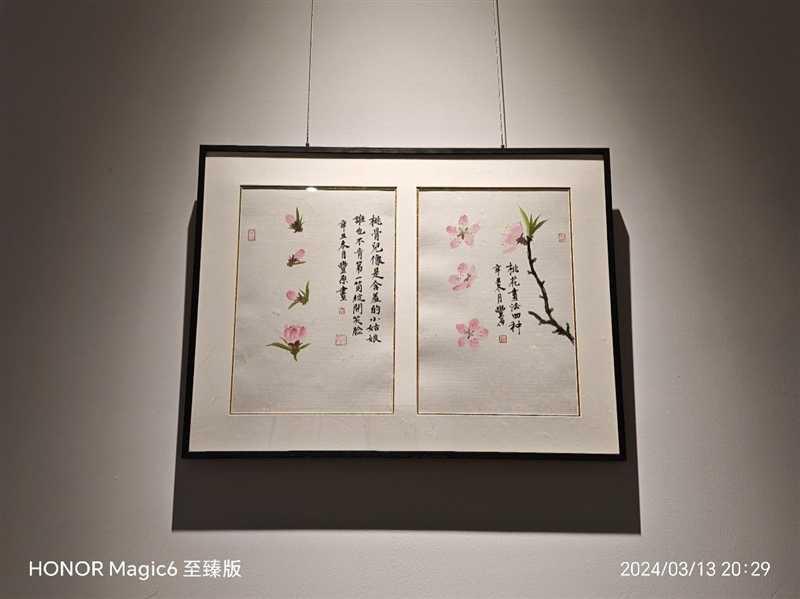 桃骨兒像是含羞的小姑娘
誰也不肯第一箇綻開笑臉
辛丑春月豐原畫
桃花畫法四种
辛丑春月豐原
HONOR Magic6 至臻版
2024/03/13 20:29